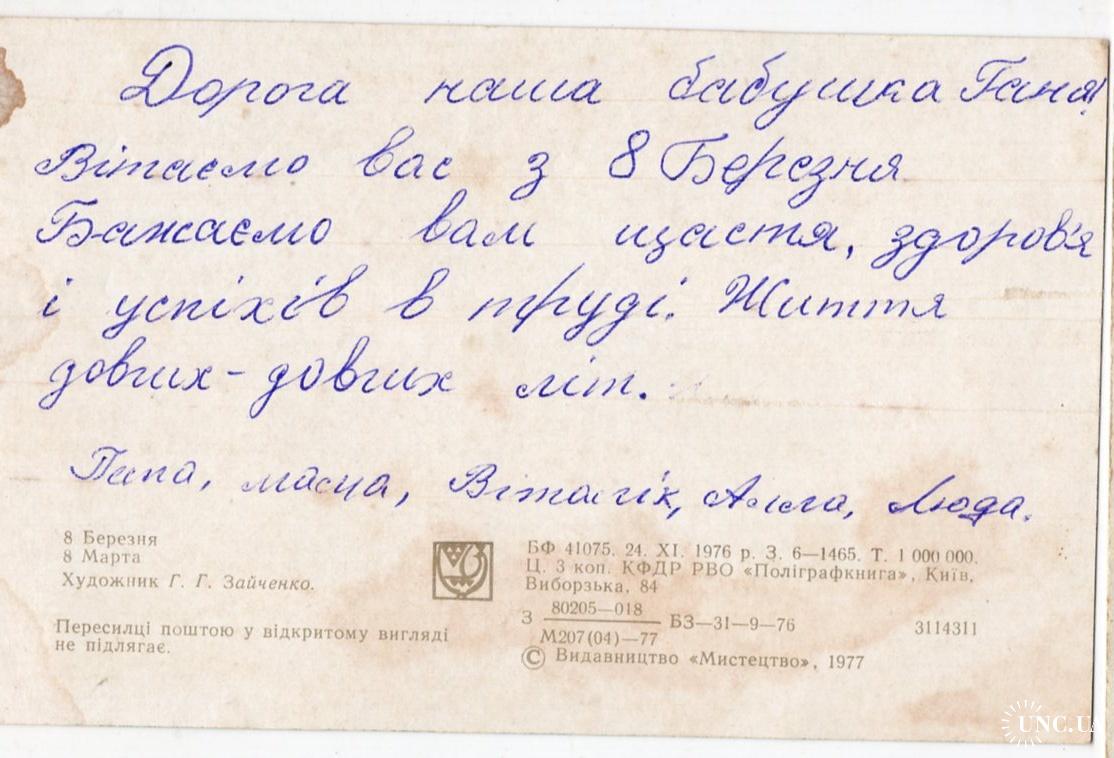 Дорога наша бабушка Ганя!
Вітаємо вас з 8 Березня
Бажаємо вам щастя, здоров'я
і успіхів в труді. Життя
довгих-довгих літ.
Папа, мама, Віталік, Алла, Люда.
8 Березня
8 Марта
Художник Г. Г. Зайченко.
Пересилці поштою у відкритому вигляді
не підлягає.
БФ 41075. 24. XI. 1976 р. З. 6—1465. Т. 1 000 000.
Ц. 3 коп. КФДР РВО «Поліграфкнига», Київ,
Виборзька, 84
З 80205—018 / М207(04)—77 БЗ—31—9—76 3114311
© Видавництво «Мистецтво», 1977
UNC.UA